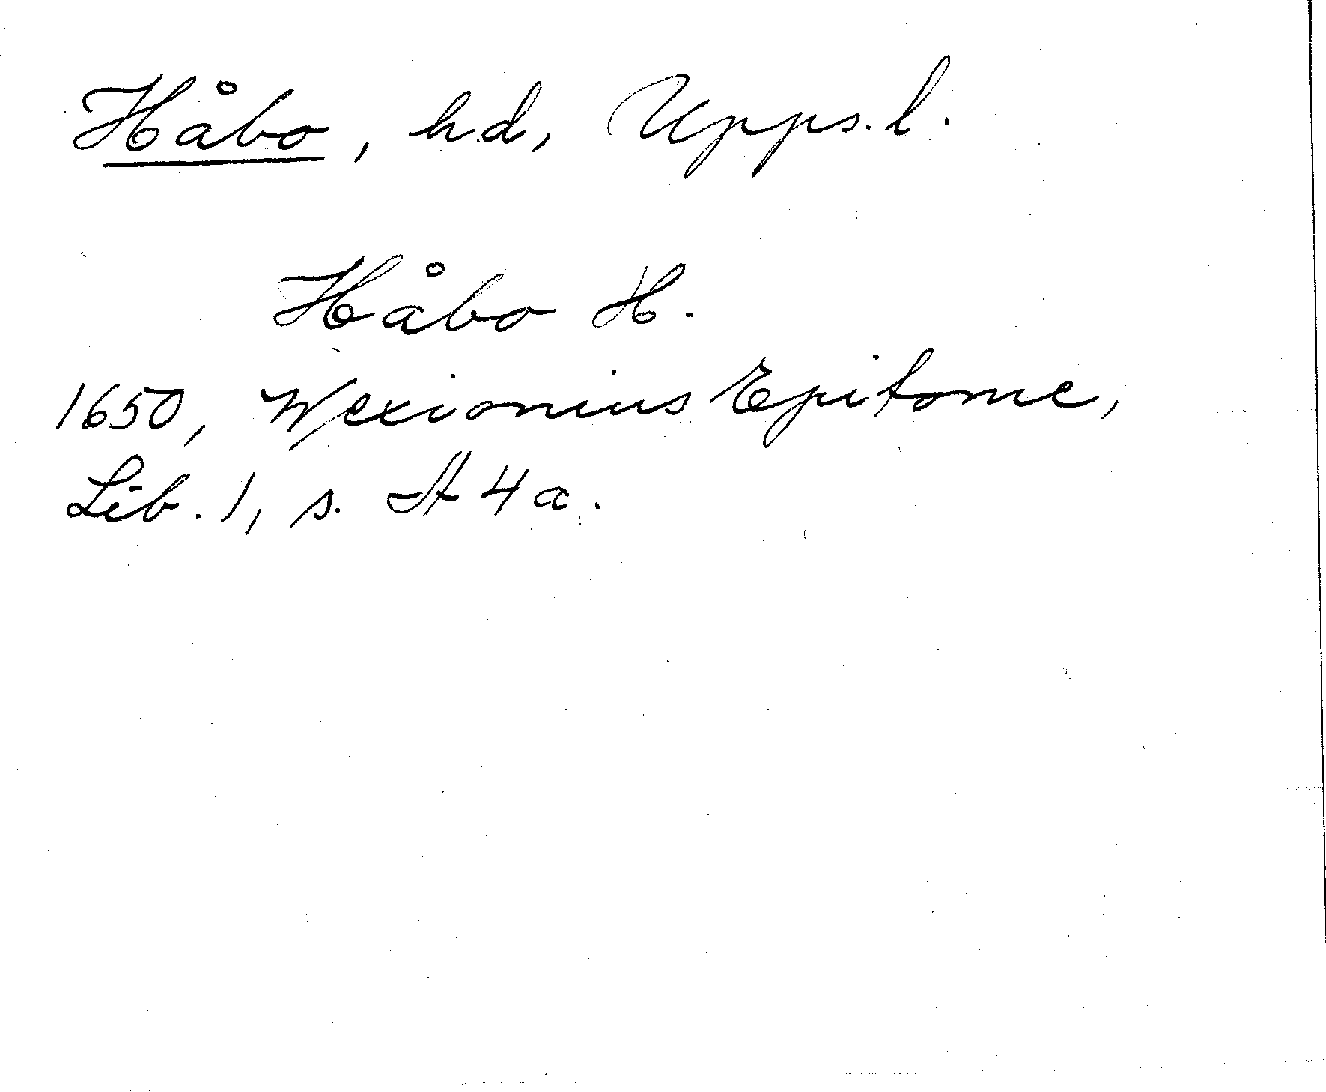 Håbo, hd, Upps. l.
Håbo H.
1650, Wexionius Epitome,
Lib. 1, s. A 4 a.